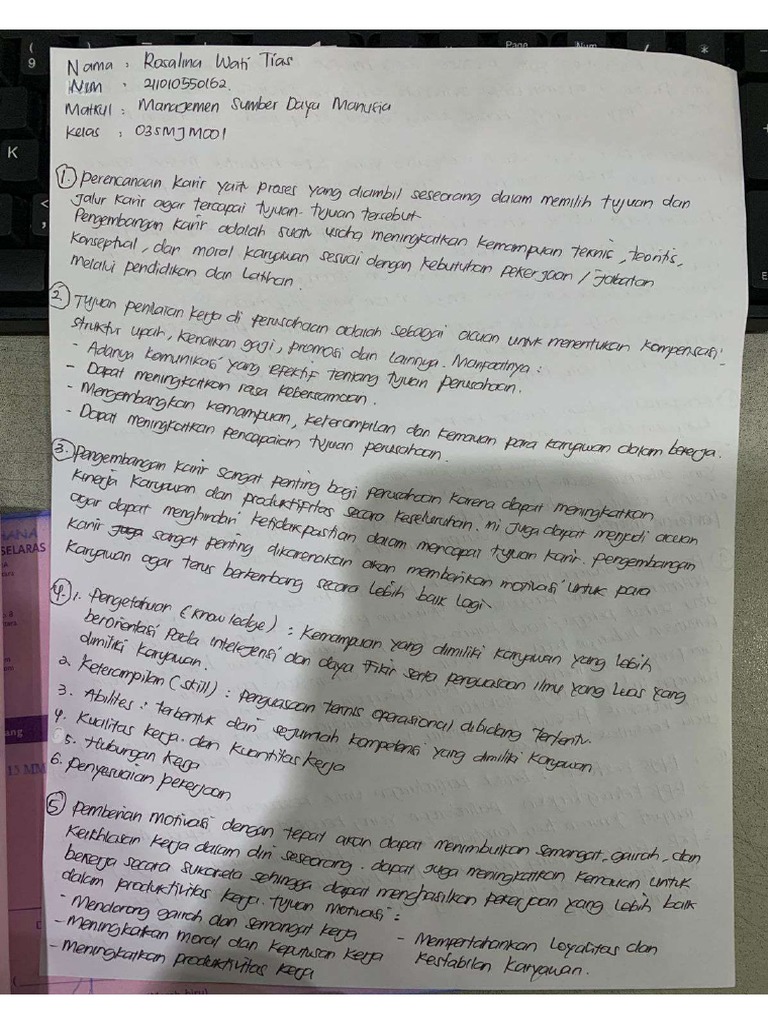 Nama : Rosalina Wati Tias
Nim : 211010550162.
Matkul : Manajemen Sumber Daya Manusia
Kelas : 03SMJM001
1. Perencanaan Karir yaitu proses yang diambil seseorang dalam memilih tujuan dan
Jalur karir agar tercapai tujuan-tujuan tersebut
Pengembangan karir adalah suatu usaha meningkatkan kemampuan teknis, teoritis,
Konseptual, dan moral karyawan sesuai dengan kebutuhan pekerjaan / Jabatan
melalui pendidikan dan Latihan.
2. Tujuan penilaian kerja di perusahaan adalah sebagai acuan untuk menentukan kompensasi
struktur upah, kenaikan gaji, promosi dan lainnya. Manfaatnya :
- Adanya komunikasi yang efektif tentang tujuan perusahaan.
- Dapat meningkatkan rasa kebersamaan.
- Mengembangkan kemampuan, keterampilan dan kemauan para karyawan dalam bekerja.
- Dapat meningkatkan pencapaian tujuan perusahaan.
3. Pengembangan karir sangat penting bagi perusahaan karena dapat meningkatkan
kinerja karyawan dan produktifitas secara keseluruhan. ini juga dapat menjadi acuan
agar dapat menghindari ketidakpastian dalam mencapai tujuan karir. pengembangan
karir juga sangat penting dikarenakan akan memberikan motivasi untuk para
karyawan agar terus berkembang secara lebih baik lagi.
4. 1. Pengetahuan (knowledge) : Kemampuan yang dimiliki karyawan yang lebih
berorientasi pada intelegensi dan daya fikir serta penguasaan ilmu yang luas yang
dimiliki karyawan.
2. Keterampilan (skill) : penguasaan teknis operasional dibidang tertentu.
3. Abilites : terbentuk dari sejumlah kompetensi yang dimiliki karyawan
4. Kualitas kerja dan kuantitas kerja
5. Hubungan kerja
6. penyesuaian pekerjaan
5 pemberian motivasi dengan tepat akan dapat menimbulkan semangat, gairah, dan
Keikhlasan kerja dalam diri seseorang. dapat juga meningkatkan kemauan untuk
bekerja secara sukarela sehingga dapat menghasilkan pekerjaan yang lebih baik
dalam produktivitas kerja. tujuan motivasi :
- Mendorong gairah dan semangat kerja
- Meningkatkan moral dan keputusan kerja
- Meningkatkan produktivitas kerja
- Mempertahankan Loyalitas dan
Kestabilan karyawan.
SELARAS
ang
15 MM